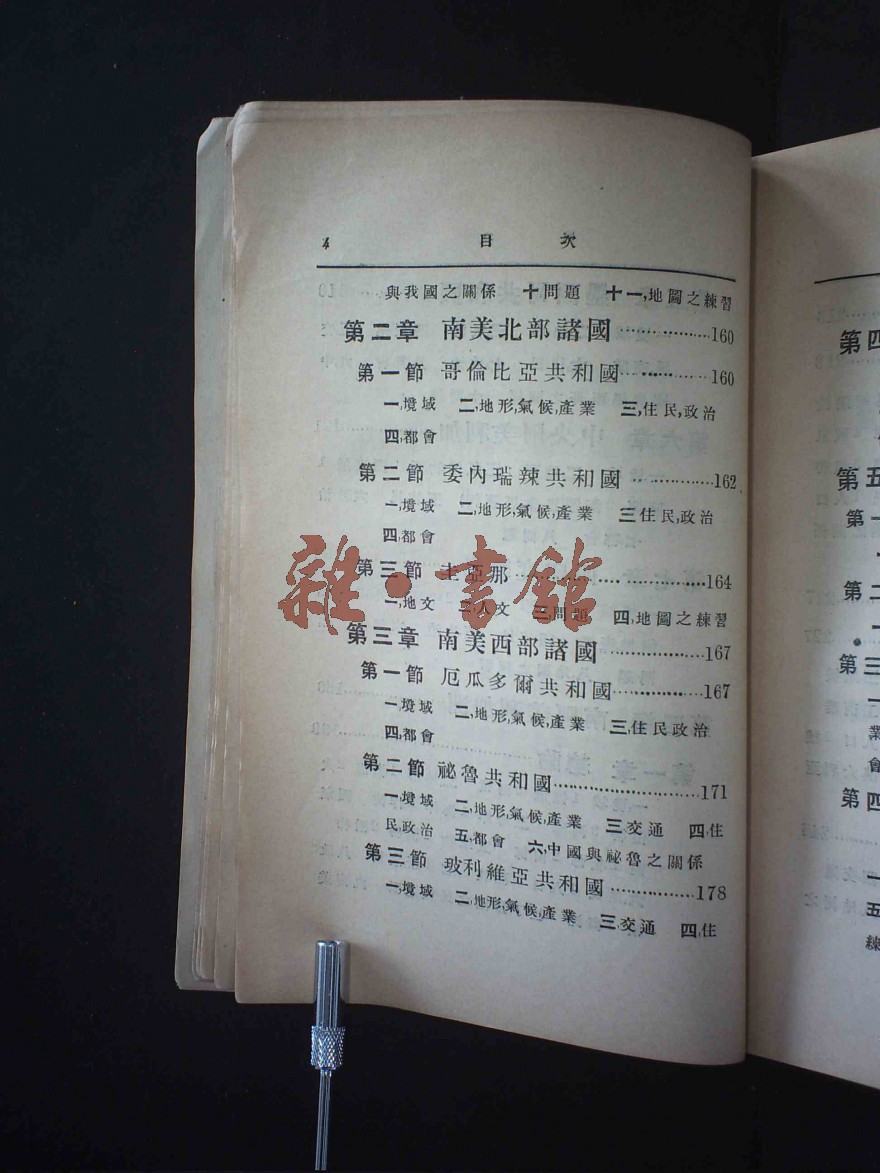 4 目次
與我國之關係 十問題 十一,地圖之練習
第二章 南美北部諸國……………160
第一節 哥倫比亞共和國……………160
一,境域 二,地形,氣候,產業 三,住民,政治
四,都會
第二節 委內瑞辣共和國……………162
一,境域 二,地形,氣候,產業 三住民,政治
四,都會
第三節 圭亞那……………164
一,地文 二,人文 三,問題 四,地圖之練習
雜·書館
第三章 南美西部諸國……………167
第一節 厄瓜多爾共和國……………167
一,境域 二,地形,氣候,產業 三,住民政治
四,都會
第二節 祕魯共和國……………171
一,境域 二,地形,氣候,產業 三,交通 四,住
民政治 五,都會 六,中國與祕魯之關係
第三節 玻利維亞共和國……………178
一,境域 二,地形,氣候,產業 三,交通 四,住
第四
第五
第一
第二
第三
業
會
第四
一
五
練